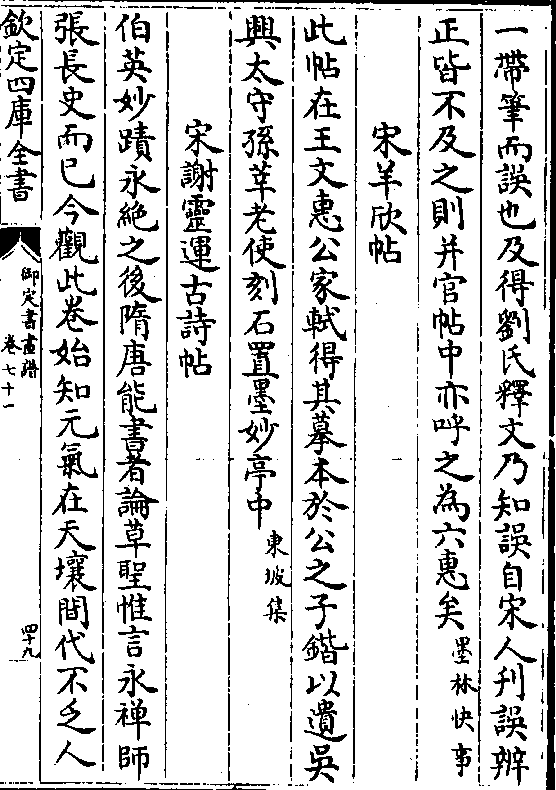 一帶筆而誤也及得劉氏釋文乃知誤自宋人刋誤辨
正皆不及之則并官帖中亦呼之為六惠矣墨林快事
宋羊欣帖
此帖在王文惠公家軾得其摹本於公之子鍇以遺吳
興太守孫莘老使刻石置墨妙亭中東坡集
宋謝靈運古詩帖
伯英妙蹟永絶之後隋唐能書者論草聖惟言永禅師
張長史而已今觀此卷始知元氣在天壤間代不乏人
欽定四庫全書
御定書畫譜
卷七十一
四十九